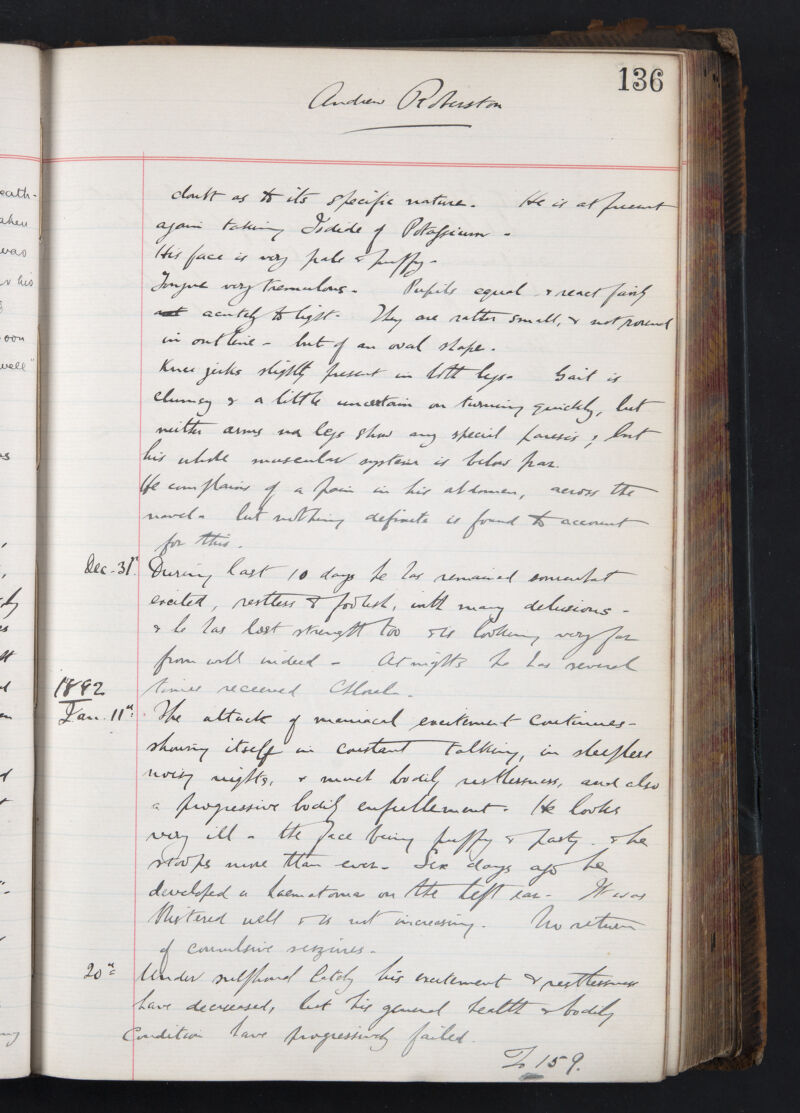 136
Andrew Roberston
doubt as to its specific nature. He is at present
again taking Iodide of Potassium -
His face is very pale & puffy -
Tongue very tremulous - Pupils equal & react fairly
acutely to light. They are rather small, & not round
in outline - but of an oval shape.
Knee jerks slightly present in both legs. Gait is
clumsy & a little uncertain on turning quickly, but
neither arms nor legs show any special paresis; but
his whole muscular system is below par.
He complains of a pain in his abdomen, across the
navel - but nothing definite is found to account
for this.
Dec. 31st. During last 10 days he has remained somewhat
excited, restless & foolish, with many delusions -
& he has lost strength too & is looking very far
from well indeed - At nights he has several
times received Chloral.
1892
Jan. 11th. The attack of maniacal excitement continues -
showing itself in constant talking, in sleepless
noisy nights, & much bodily restlessness, and also
a progressive bodily enfeeblement. He looks
very ill - the face being puffy & pasty - & he
stoops more than ever. Six days ago he
developed a haematoma on the left ear. It was
blistered well & is not increasing. No return
of convulsive seizures -
20th Under sulphonal lately his excitement & restlessness
have decreased, but his general health & bodily
condition have progressively failed.
To 159.
eath-
aken
was
his
oon
well"